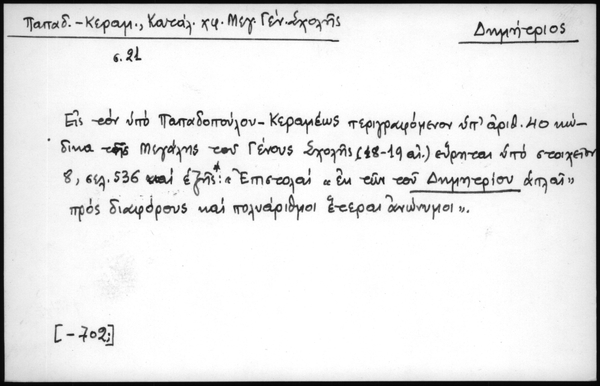 Παπαδ.-Κεραμ., Κατάλ. χφ. Μεγ. Γέν. Σχολῆς
Δημήτριος
σ. 21
Εἰς τόν ὑπό Παπαδοπούλου-Κεραμέως περιγραφόμενον ὑπ' ἀριθ. 40 κώ-
δικα τῆς Μεγάλης τοῦ Γένους Σχολῆς (18-19 αἰ.) εὕρηται ὑπό στοιχεῖον
8, σελ. 536 καί ἑξῆς*: « Ἐπιστολαί « ἐκ τῶν τοῦ Δημητρίου ἁπλαῖ»
πρός διαφόρους καί πολυάριθμοι ἕτεραι ἀνώνυμοι».
[-702;]